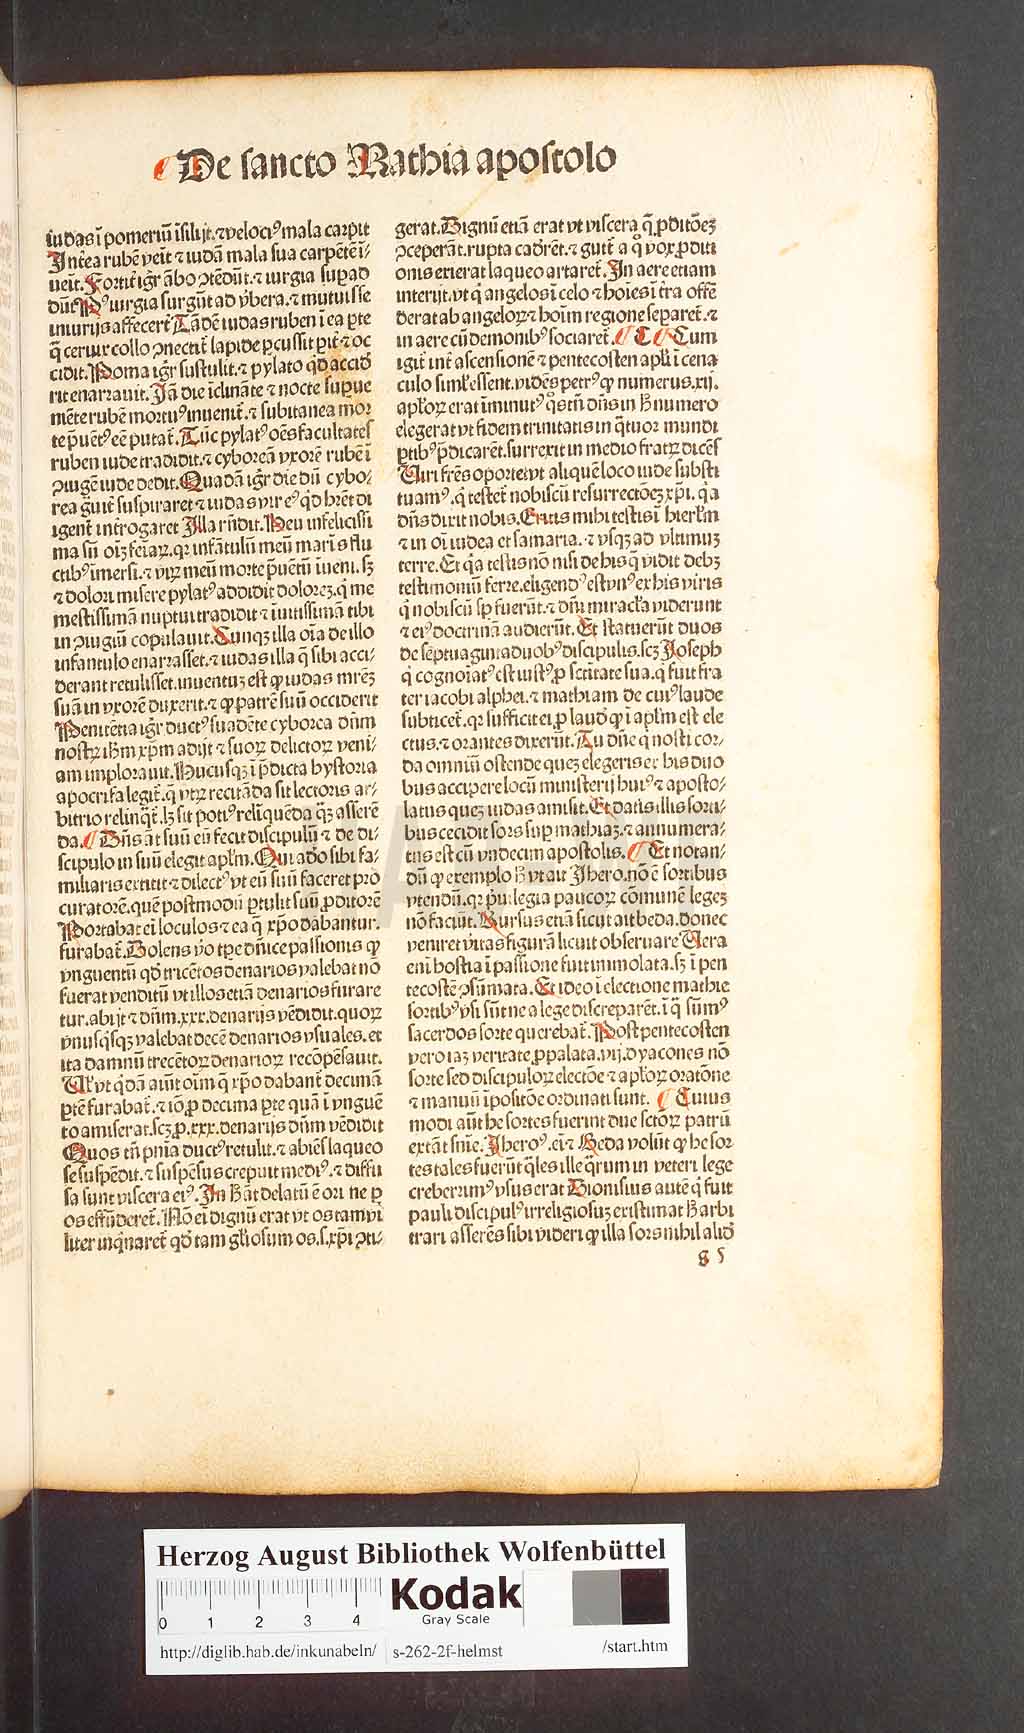 ¶ De sancto Mathia apostolo
iudas ĩ pomeriũ ĩsilijt.⁊ velociꝰ mala carpit
Int̃ea rubẽ veĩt ⁊ iudã mala sua carpẽtẽ ĩ-
ueĩt. Fortit̃ igr̃ ãbo ꝯtẽdũt.⁊ iurgia suꝑad
dũt. Pꝰ iurgia surgũt ad v̾bera.⁊ mutuis se
iniurijs affecer̃t Tãdẽ iudas ruben ĩ ea ꝑte
q̃ ceruix collo ꝯnectit̃ lapide ꝑcussit ꝑit̃ ⁊ oc
cidit. Poma igr̃ sustulit.⁊ pylato qd̃ accid̃
rit enarrauit. Jã die ĩclinãte ⁊ nocte suꝑue
niẽte rubẽ mortuꝰ inuenit̃.⁊ subitanea mor
te p̃uẽtꝰ eẽ putat̃. Tũc pylatꝰ oẽs facultates
ruben iude tradidit.⁊ cyboreã vxorẽ rubẽ ĩ
ꝯiugẽ iude dedit. Quadã igr̃ die dũ cybo-
rea g̃uit̃ suspiraret ⁊ iudas vir eꝰ qd̃ hr̃et di
igent̃ int̃rogaret Illa rñdit. Heu infelicissi
ma sũ oĩꝫ feĩaꝝ.qꝛ infãtulũ meũ maris flu
ctibꝰ ĩmersi.⁊ virũ meũ morte p̃uentũ ĩueni.sꝫ
⁊ dolori misere pylatꝰ addidit dolorez.q̃ me
mestissimã nuptui tradidit ⁊ ĩuitissimã tibi
in ꝯiugiũ copulauit. Cunqꝫ illa oĩa de illo
infantulo enarrasset.⁊ iudas illa q̃ sibi acci-
derant retulisset.inuentuꝫ est ꝙ iudas mr̃eꝫ
suã in vxorẽ duxerit.⁊ ꝙ patrẽ suũ occiderit
Penitẽtia igr̃ ductꝰ suadẽte cyborea dñm
nostꝝ ihm̃ xp̃m adijt ⁊ suoꝝ delictoꝝ veni-
am implorauit. Hucusqꝫ ĩ p̃dicta hystoria
apocrifa legit̃.q̃ vtꝝ recitãda sit lectoris ar-
bitrio relinq̃t̃.lꝫ sit potiꝰ reliq̃uẽda qꝫ asserẽ
da. ¶ Dñs ãt suũ eũ fecit discipulũ ⁊ de di-
scipulo in suũ elegit apl̃m. Qui ad̾o sibi fa-
miliaris extitit ⁊ dilectꝰ vt eũ suũ faceret pro
curatorẽ.quẽ postmodũ ꝑtulit suũ ꝓditorẽ
Portabat ei loculos ⁊ ea q̃ xp̃o dabantur.
furabat̃. Dolens v̾o tꝑe dñice passionis ꝙ
vnguentũ qd̾ tricẽtos denarios valebat nõ
fuerat venditũ vt illos etiã denarios furare
tur.abijt ⁊ dñm.xxx.denarijs vẽdidit.quoꝝ
vnusq̃sqꝫ valebat decẽ denarios vsuales.et
ita damnũ trecẽtoꝝ denarioꝝ recõpẽsauit.
Ul̾ vt q̃dã aiũt oĩm q̃ xp̃o dabant̃ decimã
ꝑtẽ furabat̃.⁊ iõ ꝓ decima ꝑte quã ĩ vnguẽ
to amiserat.scꝫ ꝓ.xxx.denarijs dñm vẽdidit
Quos tñ pñia ductꝰ retulit.⁊ abiẽs laqueo
se suspẽdit.⁊ suspẽsus crepuit mediꝰ.⁊ diffu
sa sunt viscera eiꝰ. In h̾ ãt delatũ ẽ ori ne ꝑ
os effũderet̃. Nõ eĩ dignũ erat vt os tam vi
liter inq̃naret̃ qd̾ tam gl̃iosum os.s.xp̃i ꝯti-
gerat. Dignũ etiã erat vt viscera q̃ ꝓditõeꝫ
ꝯceperãt.rupta cad̾ẽt.⁊ gutt̃ a q̾ vox ꝓditi
onis exierat laqueo artaret̃. In aere etiam
interijt.vt q̃ angelos ĩ celo ⁊ hoĩes ĩ t̃ra offẽ
derat ab angeloꝝ ⁊ hoĩm regione separet̃.⁊
in aere cũ demonibꝰ sociaret̃. ¶ C ¶ Cum
igit̃ int̃ ascensionẽ ⁊ pentecosten apl̃i ĩ cena
culo simĺ essent.vidẽs petrꝰ ꝙ numerus.xij.
apl̾oꝝ erat ĩminutꝰ q̾s tñ dñs in h̾ numero
elegerat vt fidem trinitatis in q̃tuor mundi
ꝑtibꝰ p̃dicarẽt.surrexit in medio fratꝝ dicẽs
Uiri fr̃es oportet vt aliquẽ loco iude substi
tuamꝰ.q̃ testet̃ nobiscũ resurrectõeꝫ xp̃i.q̾a
dñs dixit nobis. Eritis mihi testis ĩ hierl̾m
⁊ in oĩ iudea et samaria.⁊ vsqꝫ ad vltimuꝫ
terre. Et q̾a testis nõ nisi de his q̃ vidit debꝫ
testimoniũ ferre.eligendꝰ est vnꝰ ex his viris
q̃ nobiscũ sꝑ fuerũt.⁊ dñi miracl̾a viderunt
⁊ eiꝰ doctrinã audierũt. Et statuerũt duos
de sẽptuaginta duobꝰ discipulis.scꝫ Joseph
q̃ cognoĩatꝰ est iustꝰ ꝓ sctĩtate sua.q̃ fuit fra
ter iacobi alphei.⁊ mathiam de cuiꝰ laude
subticet̃.qꝛ sufficit ei ꝓ laud̾ ꝙ ĩ apl̃m est ele
ctus.⁊ orantes dixerũt. Tu dñe q̃ nosti cor-
da omniũ ostende queꝫ elegeris ex his duo
bus accipere locũ ministerij huiꝰ ⁊ aposto-
latus queꝫ iudas amisit. Et datis illis sorti-
bus cecidit sors suꝑ mathiaꝫ.⁊ annumera-
tus est cũ vndecim apostolis. ¶ Et notan-
dũ ꝙ exemplo h̾ vt ait Jhero.nõ ẽ sortibus
vtendũ.qꝛ p̾uilegia paucoꝝ cõmunẽ legeꝫ
nõ faciũt. Rursus etiã sicut ait beda.donec
veniret v̾itas figurã licuit obseruare Uera
eni hostia ĩ passione fuit immolata.sꝫ ĩ pen
tecostẽ ꝯsũmata. Et ideo ĩ electione mathie
sortibꝰ vsi sũt ne a lege discreparẽt.ĩ q̃ sũmꝰ
sacerdos sorte querebat̃. Post pentecosten
vero iaꝫ veritate ꝓpalata.vij.dyacones nõ
sorte sed discipuloꝝ electõe ⁊ apl̾oꝝ oratõne
⁊ manuũ ĩpositõe ordinati sunt. ¶ Cuius
modi aũt he sortes fuerint due sctoꝝ patrũ
extãt snĩe. Jheroꝰ.eĩ ⁊ Beda volũt ꝙ he sor
tes tales fuerũt q̃les ille q̃rum in veteri lege
creberrimꝰ vsus erat Dionisius autẽ q̃ fuit
pauli discipulꝰ irreligiosuꝫ existimat h̾ arbi
trari asserẽs sibi videri ꝙ illa sors nihil aliud̾
g 5
Herzog August Bibliothek Wolfenbüttel
0 1 2 3 4
Kodak
Gray Scale
http://diglib.hab.de/inkunabeln/ s-262-2f-helmst /start.htm